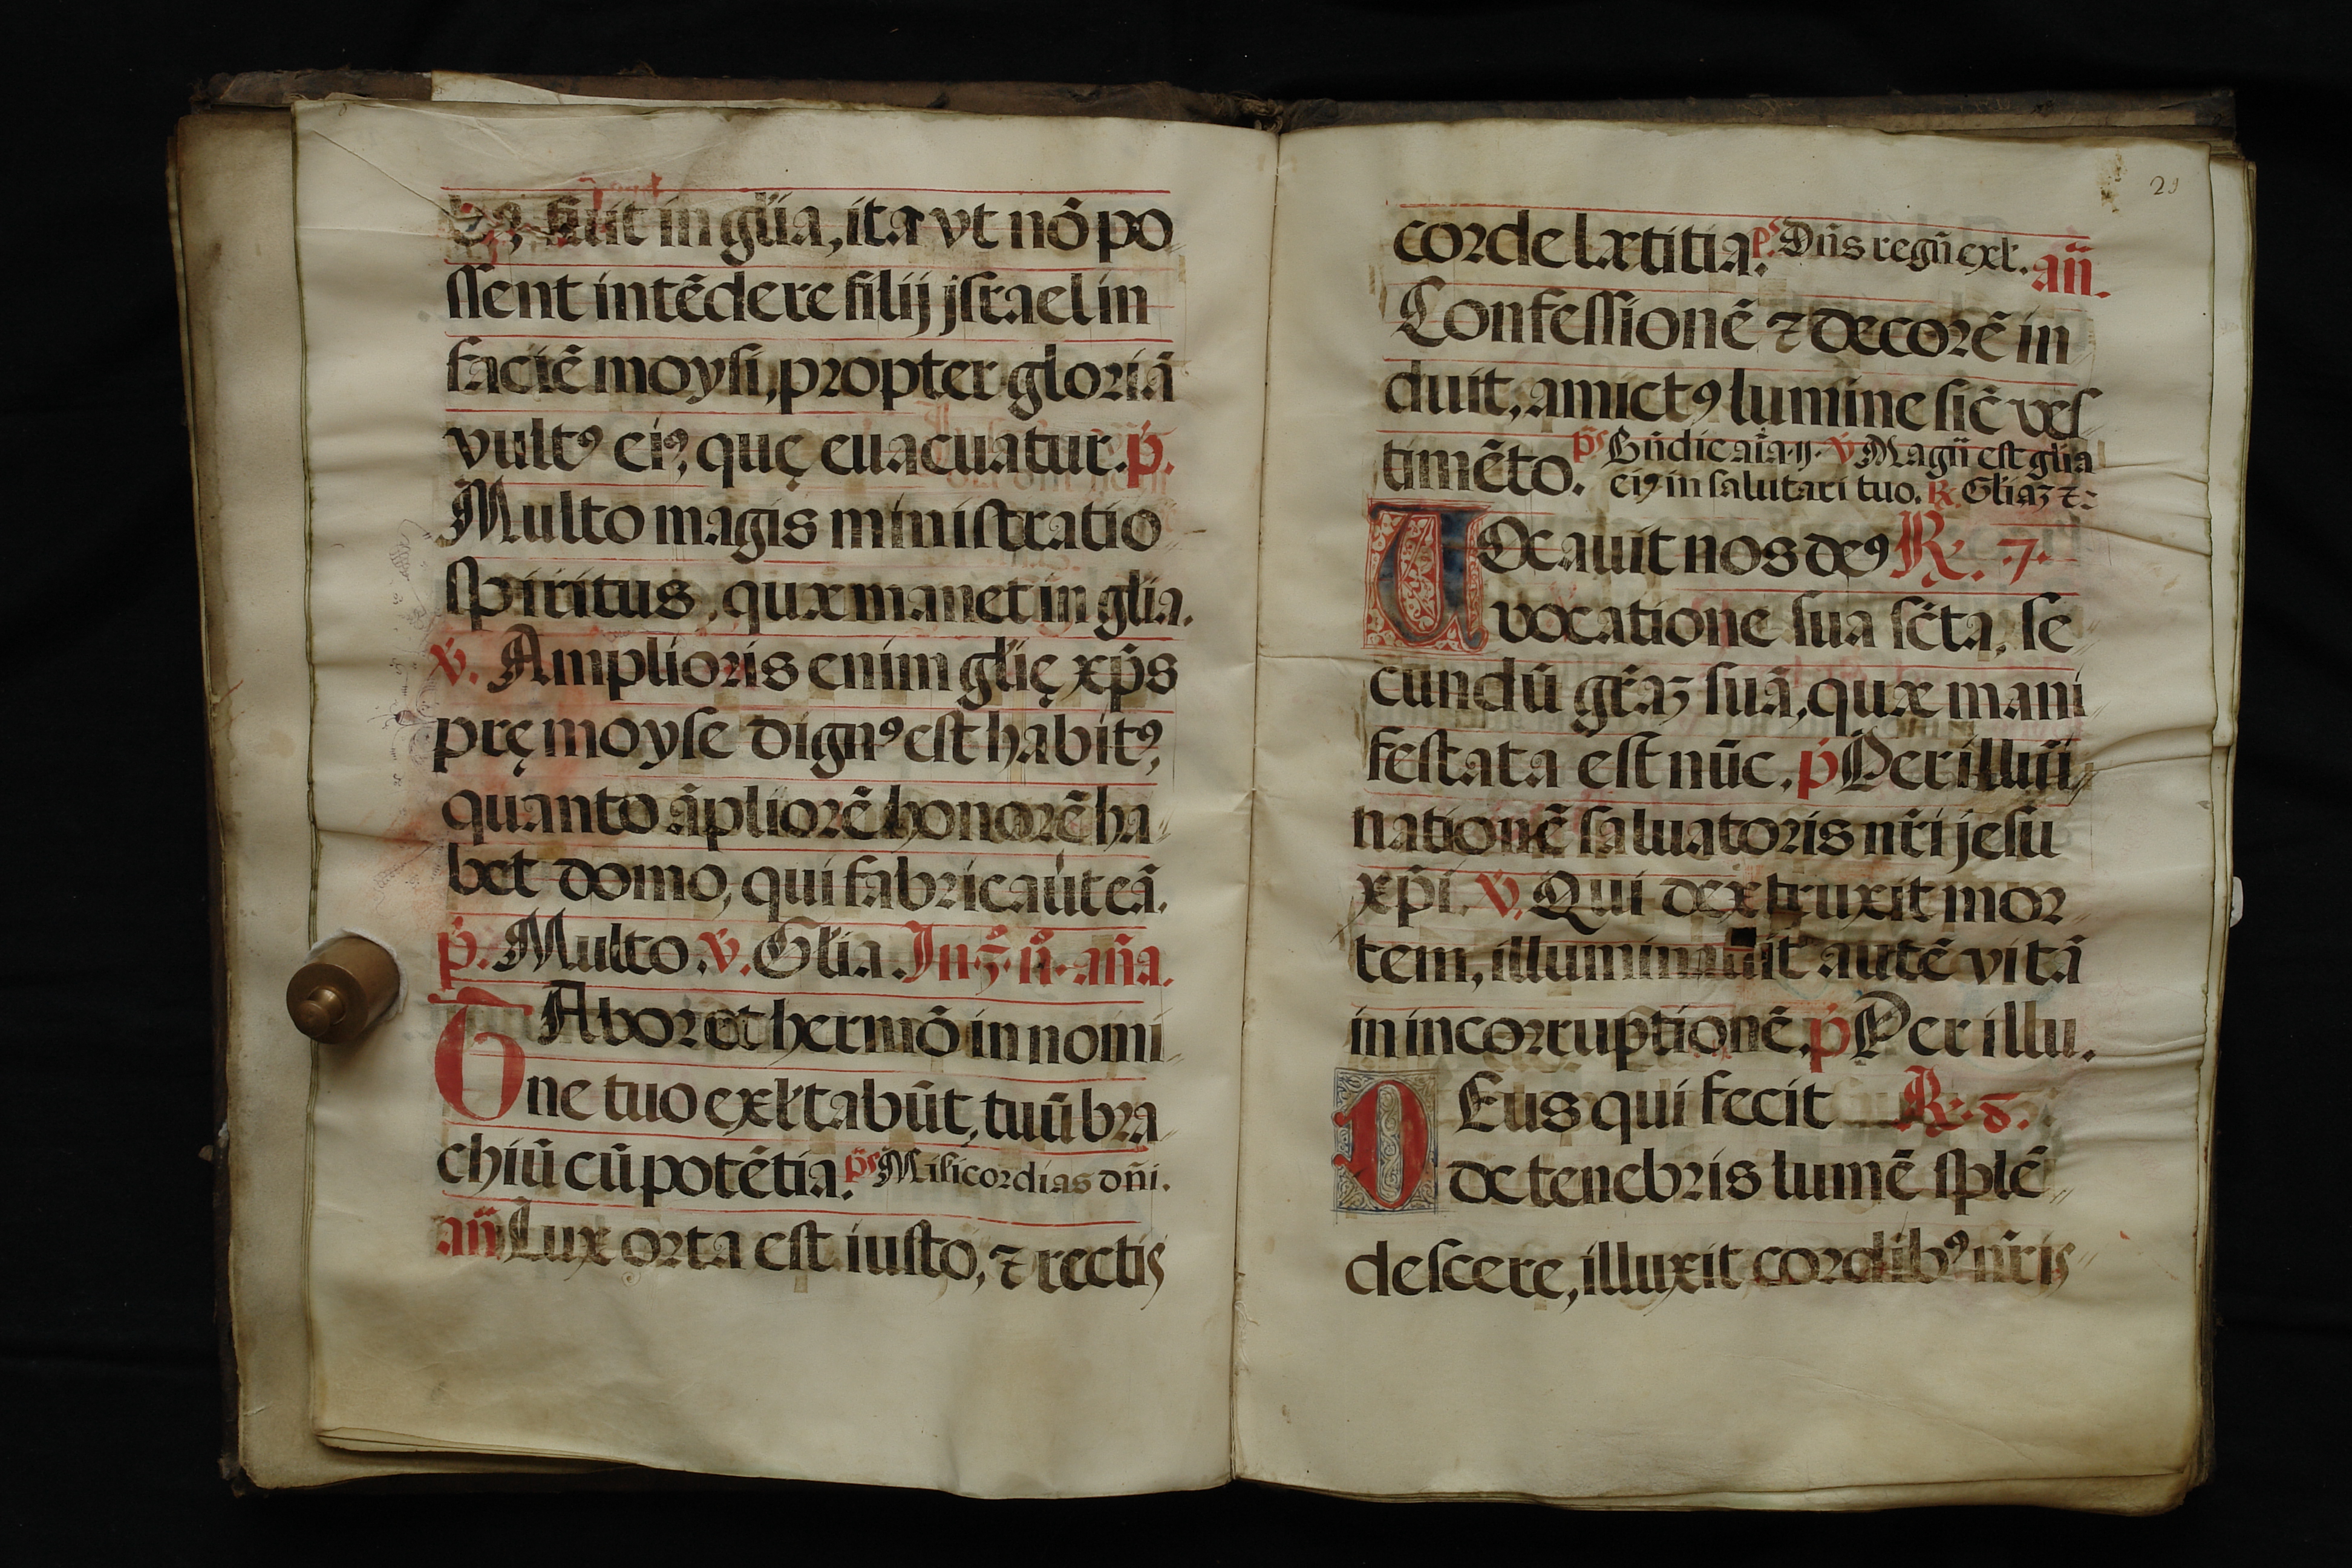 bꝰ, fuit in gl̃ia, ita vt nõ po
ſſent intẽdere filij jſrael in
faciẽ moyſi, propter gloriã
vultꝰ eiꝰ, quę euacuatur. p̃.
Multo magis miniſtratio
ſpiritus, quæ manet in gl̃ia.
ṽ. Amplioris enim gl̃ię xp̃s
prę moyſe dignꝰ eſt habitꝰ,
quanto ãpliorẽ honorẽ ha
bet domo, qui fabricauit eã.
p̃. Multo. ṽ. Gl̃ia. In.3.ñ. añã.
TAbor et hermõ in nomi
ne tuo exl̃tabũt, tuũ bra
chiũ cũ potẽtia. p̃s Miſicordias dñi.
añ Lux orta eſt iuſto, ⁊ rectis
29
corde lætitia. ps̃ Dñs regñ exl̃. añ.
Confeſſionẽ ⁊ decorẽ in
duit, amictꝰ lumine ſic̃ veſ
timẽto. p̃s Bñdic aĩa ij. ṽ Magñ eſt gl̃ia
eiꝰ in ſalutari tuo. ℟ Gl̃iaʒ ⁊:
UOcauit nos deꝰ ℟. 7.
vocatione ſua ſc̃ta, ſe
cundũ gr̃aʒ ſuã, quæ mani
feſtata eſt nũc. p̃ Per illuĩ
nationẽ ſaluatoris nr̃i jeſu
xp̃i. ṽ. Qui dextruxit mor
tem, illuminauit autẽ vitã
in incorruptionẽ. p̃ Per illu.
DEus qui fecit ℟. 8.
de tenebris lumẽ ſplẽ
deſcere, illuxit cordibꝰ nr̃is